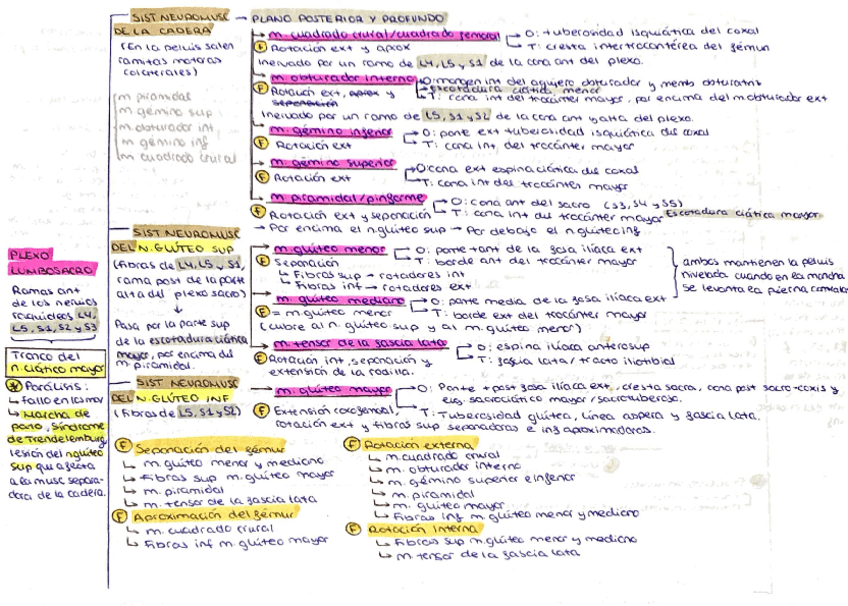 PLEXO
LUMBOSACRO
Ramas ant
de los nervios
raquídeos L4,
L5, S1, S2 y S3
Tronco del
n. ciático mayor
Parálisis:
→ fallo en
→ Marcha de
pato, síndrome
de Trendelemburg
lesión del n glúteo
sup que afecta
a la musc separa-
dora de la cadera.
SIST NEUROMUSC
DE LA CADERA
(En la pelvis salen
ramitas motoras
colaterales)
m piramidal
m gémino sup
m. obturador int
m. gémino inf
m cuadrado crural
→ PLANO POSTERIOR Y PROFUNDO
m. cuadrado crural/cuadrado femoral
O: tuberosidad isquiática del coxal
T: cresta intertrocantérea del fémur
F Rotación ext y aprox
Inervado por un ramo de L4, L5 y S1 de la cara ant del plexo.
m. obturador interno
O: margen int del agujero obturador y memb obturatriz
escotadura ciática menor
T: cara int del trocánter mayor, por encima del m obturador ext
F Rotación ext, aprox y
separación
Inervado por un ramo de L5, S1 y S2 de la cara ant y alta del plexo.
m. gémino inferior
O: parte ext tuberosidad isquiática del coxal
T: cara int. del trocánter mayor
F Rotación ext
m. gémino superior
O: cara ext espina ciática del coxal
T: cara int del trocánter mayor
F Rotación ext
m. piramidal/piriforme
O: cara ant del sacro (S3, S4 y S5)
T: cara int del trocánter mayor Escotadura ciática mayor
F Rotación ext y separación
→ Por encima el n. glúteo sup → Por debajo el n. glúteo inf
SIST NEUROMUSC
DEL N. GLÚTEO SUP
(fibras de L4, L5 y S1,
rama post de la parte
alta del plexo sacro)
Pasa por la parte sup
de la escotadura ciática
mayor, por encima del
m. piramidal.
m. glúteo menor
O: parte + ant de la fosa ilíaca ext
T: borde ant del trocánter mayor
F Separación
Fibras sup → rotadores int
Fibras inf → rotadores ext
m. glúteo mediano
O: parte media de la fosa ilíaca ext
T: borde ext del trocánter mayor
F = m. glúteo menor
(cubre al n. glúteo sup y al m. glúteo menor)
ambos mantienen la pelvis
nivelada cuando en la marcha
se levanta la pierna
m. tensor de la fascia lata
O: espina ilíaca anterosup
T: fascia lata / tracto iliotibial
F Rotación int, separación y
extensión de la rodilla.
SIST NEUROMUSC
DEL N. GLÚTEO INF
(fibras de L5, S1 y S2)
m. glúteo mayor
O: Parte + post fosa ilíaca ext, cresta sacra, cara post sacro-coxis y
lig. sacrociático mayor/sacrotuberoso.
T: Tuberosidad glútea, línea aspera y fascia lata.
F Extensión coxofemoral,
rotación ext y fibras sup separadoras e inf aproximadoras.
F Separación del fémur
m. glúteo menor y mediano
Fibras sup m. glúteo mayor
m. piramidal
m. tensor de la fascia lata
F Aproximación del fémur
m. cuadrado crural
Fibras inf m. glúteo mayor
F Rotación externa
m. cuadrado crural
m. obturador interno
m. gémino superior e inferior
m. piramidal
m. glúteo mayor
Fibras inf m. glúteo menor y mediano
F Rotación interna
Fibras sup m. glúteo menor y mediano
m. tensor de la fascia lata